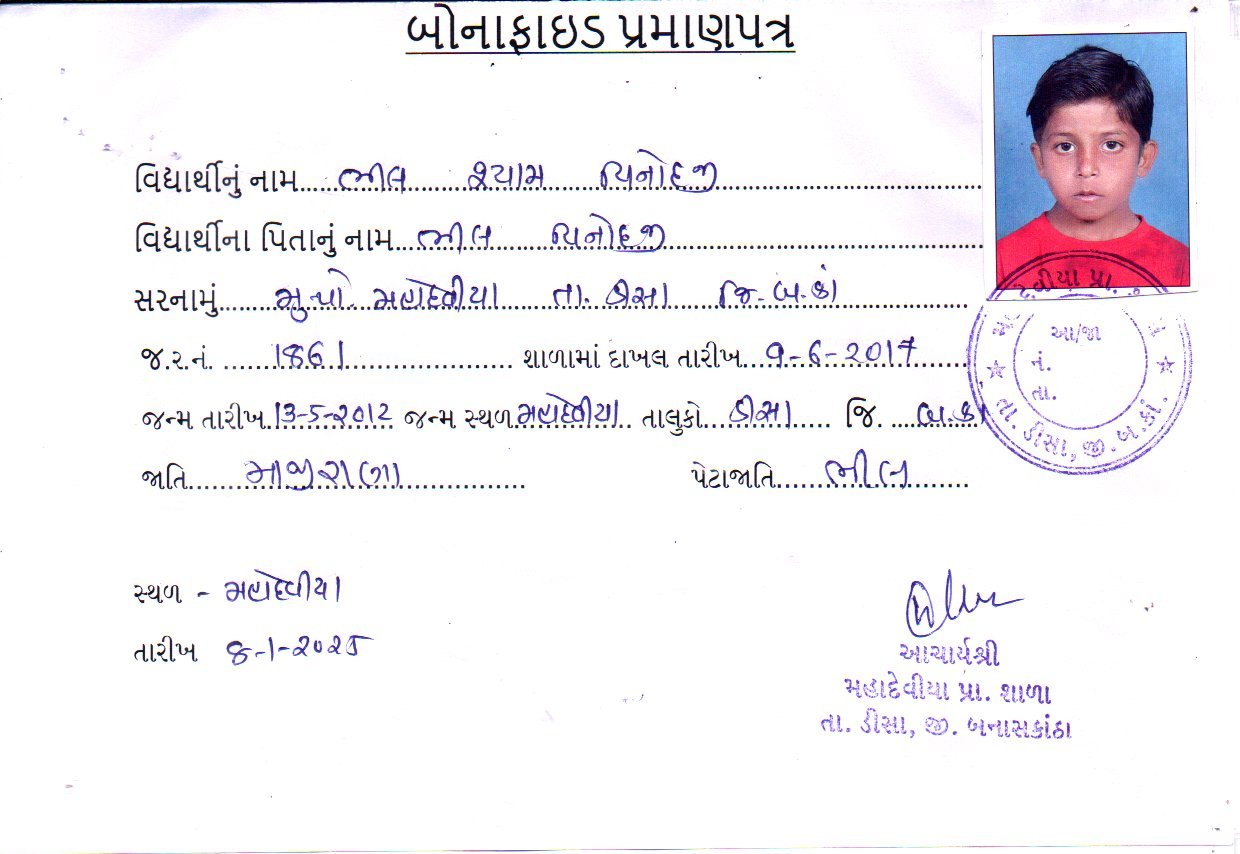 બોનાફાઇડ પ્રમાણપત્ર
વિદ્યાર્થીનું નામ..... ભીલ શ્યામ વિનોદજી
વિદ્યાર્થીના પિતાનું નામ... ભીલ વિનોદજી
સરનામું....... મુ.પો. મહાદેવીયા તા. ડીસા જિ. બ.કાં
જ.ર.નં. ...... 1861 ...... શાળામાં દાખલ તારીખ... 9-6-૨૦17
જન્મ તારીખ. 13-5-૨૦1૨ જન્મ સ્થળ. મહાદેવીયા તાલુકો.... ડીસા જિ. .... બ.કાં
જાતિ....... પેટાજાતિ...... ભીલ
સ્થળ - મહાદેવીયા
તારીખ 8-1-૨૦૨5
આચાર્યશ્રી
મહાદેવીયા પ્રા. શાળા
તા. ડીસા, જી. બનાસકાંઠા
દેવીયા પ્રા.
આ/જા
નં.
તા.
તા. ડીસા, જી. બ.કાં.